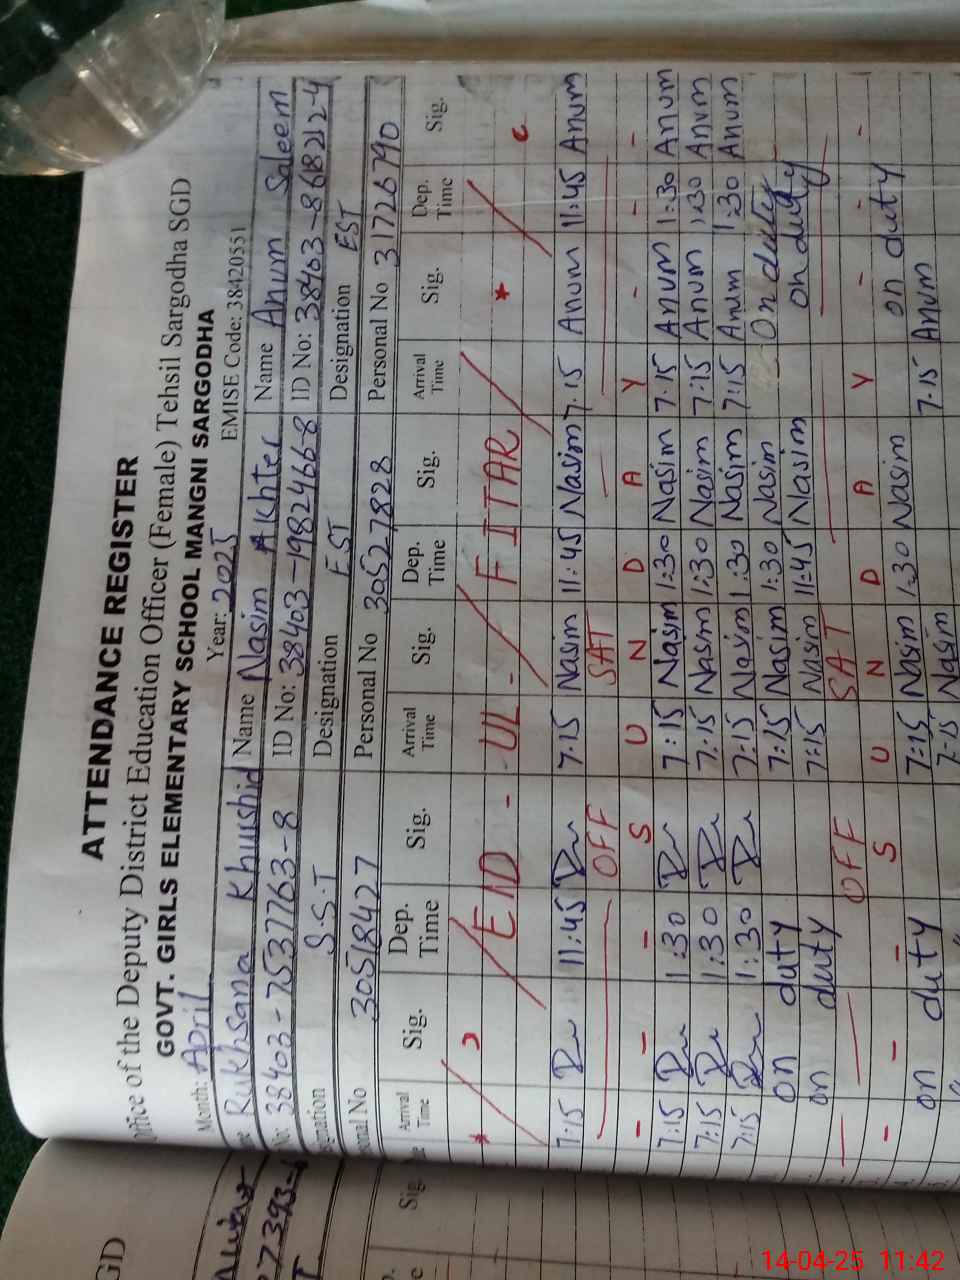 ATTENDANCE REGISTER
Office of the Deputy District Education Officer (Female) Tehsil Sargodha SGD
GOVT. GIRLS ELEMENTARY SCHOOL MANGNI SARGODHA
Month: April Year: 2025 EMISE Code: 38420551
Rukhsana Khurshid Name Nasim Akhter Name Anum Saleem
No: 38403-7537763-8 ID No: 38403-1982466-8 ID No: 38403-8618212-4
signation S.S.T Designation EST Designation EST
sonal No 30518427 Personal No 30527828 Personal No 31726790
Arrival Time Sig. Dep. Time Sig. Arrival Time Sig. Dep. Time Sig. Arrival Time Sig. Dep. Time Sig.
EID - UL - FITAR
7:15 11:45 7.15 Nasim 11:45 Nasim 7.15 Anum 11:45 Anum
OFF SAT
- - - S U N D A Y - - -
7:15 1:30 7:15 Nasim 1:30 Nasim 7.15 Anum 1:30 Anum
7:15 1:30 7:15 Nasim 1:30 Nasim 7:15 Anum 1:30 Anum
7:15 1:30 7:15 Nasim 1:30 Nasim 7:15 Anum 1:30 Anum
on duty 7:15 Nasim 1:30 Nasim On duty
on duty 7:15 Nasim 11:45 Nasim on duty
OFF SAT
- - - S U N D A Y - - -
on duty 7:15 Nasim 1:30 Nasim on duty
7-15 Nasim 7.15 Anum
SGD
Sig
14-04-25 11:42